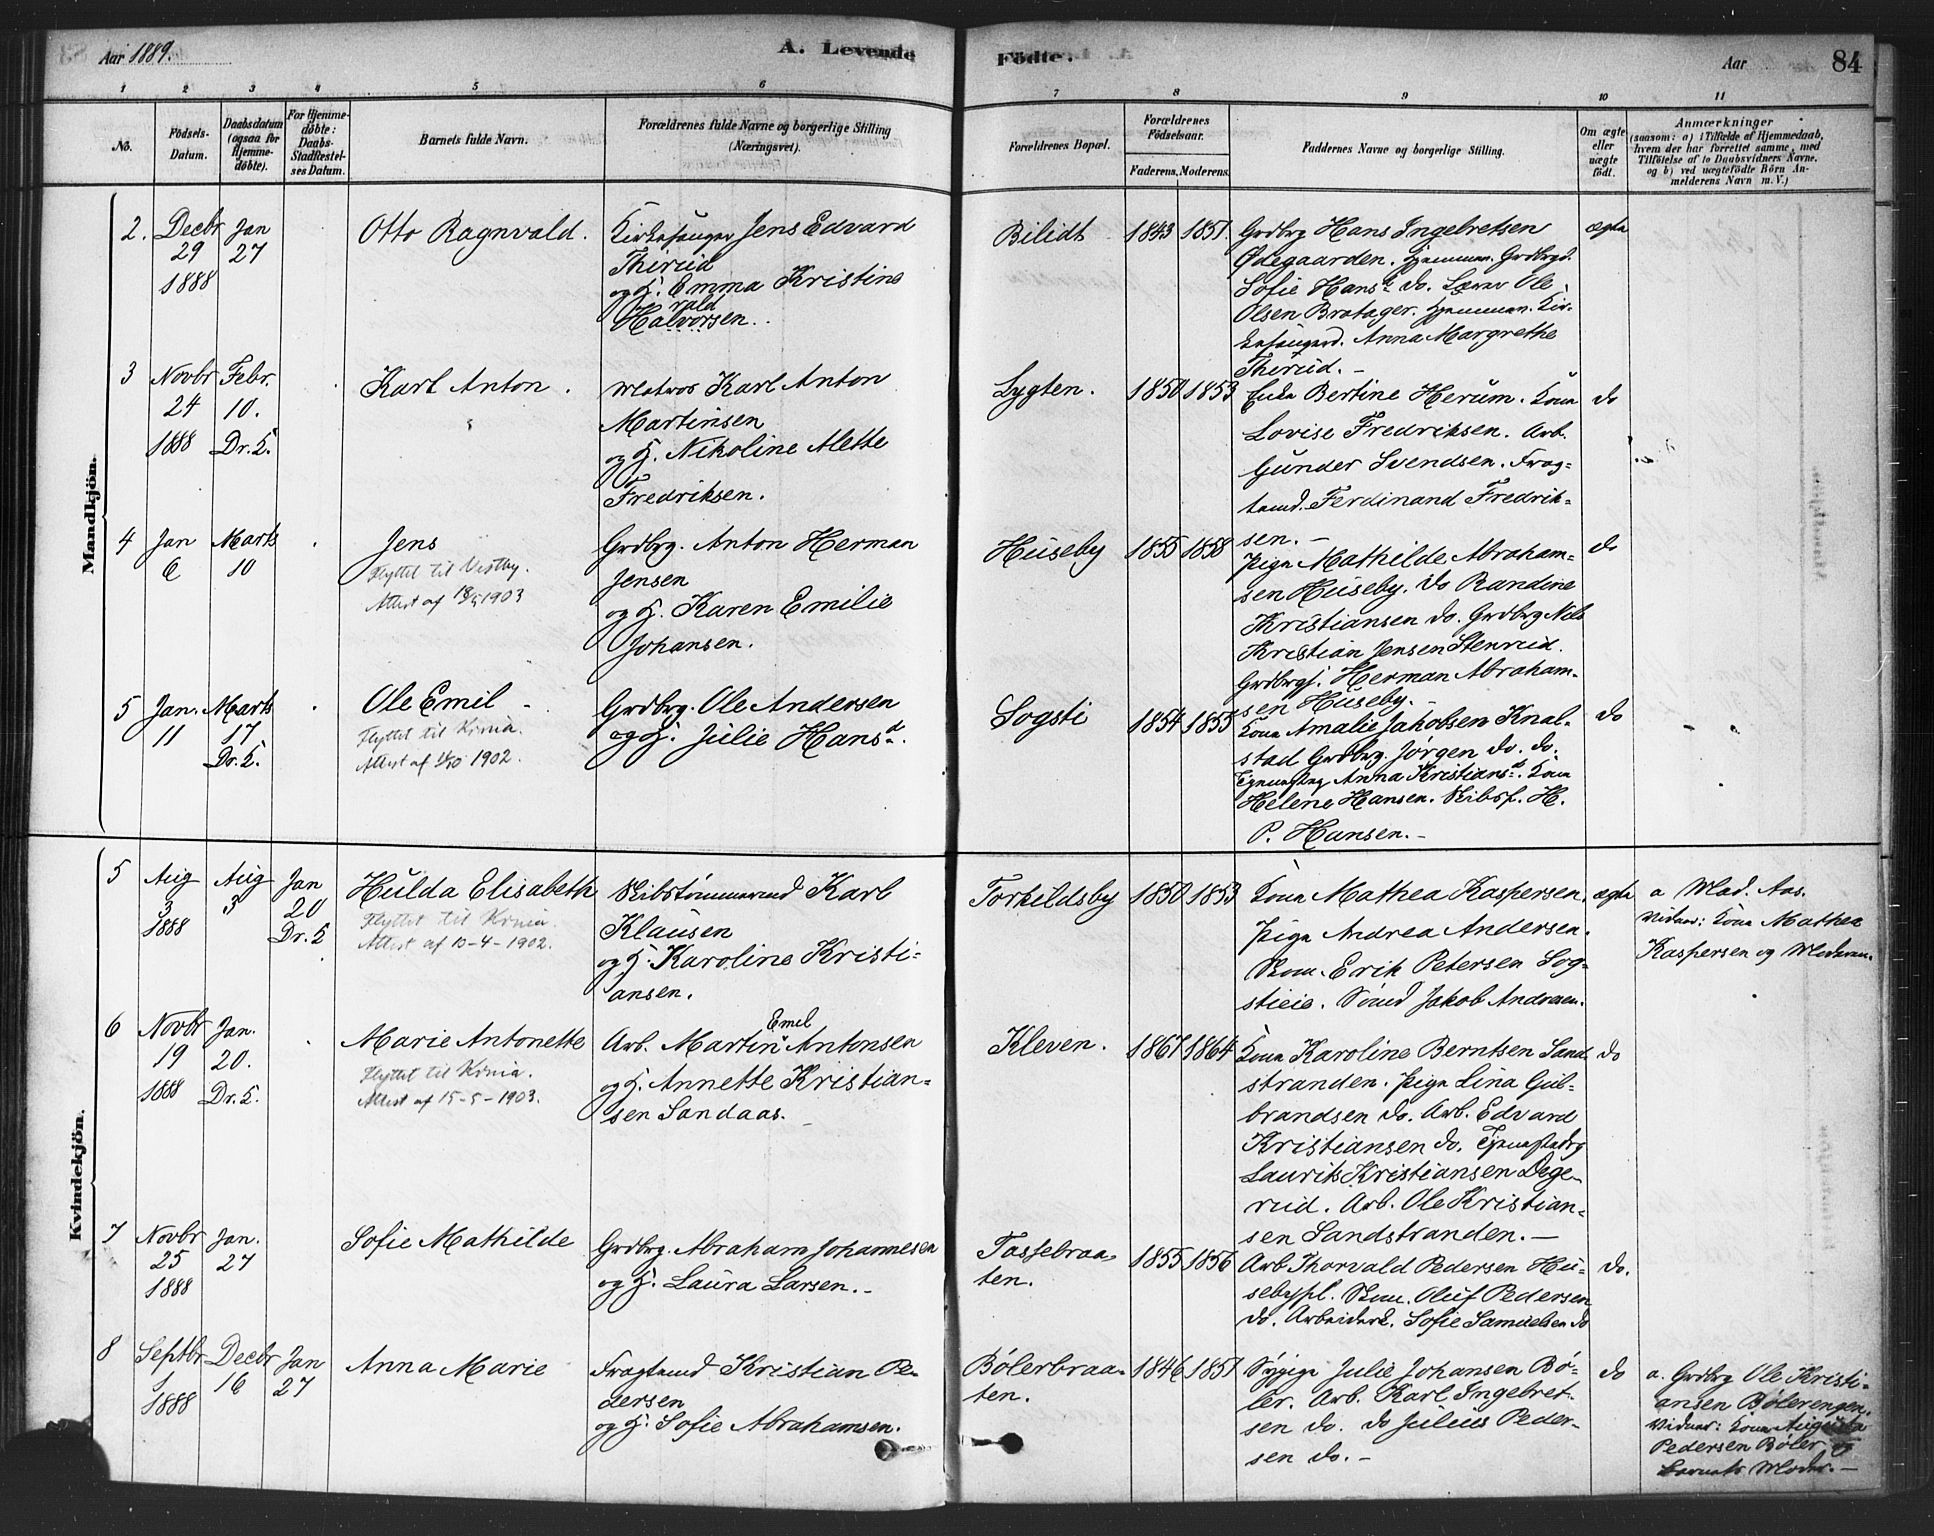 Aar 1889.
A. Levende
Födte.
Aar
84
1 2 3 4 5 6 7 8 9 10 11
No.
Födsels-
Datum.
Daabsdatum
(ogsaa for
Hjemme-
døbte).
For Hjemme-
døbte:
Daabs-
Stadfæstel-
ses Datum.
Barnets fulde Navn.
Forældrenes fulde Navne og borgerlige Stilling
(Næringsvei).
Forældrenes Bopæl.
Forældrenes
Fødselsaar.
Faderens.
Moderens.
Faddernes Navne og borgerlige Stilling.
Om ægte
eller
uægte
født.
Anmærkninger
(saasom: a) i Tilfælde af Hjemmedaab,
hvem der har forrettet samme, med
Tilföielse af to Daabsvidners Navne,
og b) ved uægtefödte Börn An-
melderens Navn m. V.)
Mandkjön.
2.
Decbr
29
1888
Jan
27
Otto Ragnvald.
Kirkesanger Jens Edvard
Thirud
og H. Emma Kristine
Halvorsen.
Bilidt
1843
1851.
Grdbrg Hans Ingebretsen
Ødegaarden. Hjemmev. Grdbrgd.
Sofie Hansd. do. Lærer Ole
Olsen Brotager. Hjemmev. Kir-
kesangerd. Anna Margrethe
Thirud. –
ægte
3
Novbr
24
1888
Febr.
10.
Dr. K.
Karl Anton.
Matros Karl Anton
Martinsen
og H. Nikoline Alette
Fredriksen.
Lygten.
1850
1853
Enke Bertine Herum. Kone
Lovise Fredriksen. Arb.
Gunder Svendsen. Frag-
temd. Ferdinand Fredrik-
sen. –
do
4
Jan
6
Marts
10
Jens
Flyttet til Vestby.
Attest af 18/5 1903
Grdbrg. Anton Herman
Jensen
og H. Karen Emilie
Johansen.
Huseby
1855
1858
Pige Mathilde Abraham-
sen Huseby. do Randine
Kristiansen do. Grdbrg Nels
Kristian Jensen Stenrud.
Grdbrgs. Herman Abraham-
sen Huseby. –
do
5
Jan.
11
Marts
17
Dr. K.
Ole Emil –
Flyttet til Krnia.
Attest af 1902.
Grdbrg. Ole Andersen
og H. Julie Hansd.
Sogsti
1854
1855
Kone Amalie Jakobsen Knal-
stad Grdbrg. Jørgen do. do.
Tjenestepg Anna Kristiansd. Kone
Helene Hansen. Skibsf. H.
P. Hansen. –
do
Kvindekjön.
5
Aug
3
1888
Aug
3
Jan
20
Dr. K
Hulda Elisabeth
Flyttet til Krnia.
Attest af 10-4-1902.
Skibstømmermd Karl
Klausen
og H. Karoline Kristi-
ansen.
Torkildsby
1850
1853
Kone Mathea Kaspersen.
Pige Andrea Andersen.
Skom. Erik Petersen Sog-
stieie. Sømd Jakob Andersen.
ægte
a Mad. Aas.
Vidner: Kone Mathea
Kaspersen og Moderen.
6
Novbr
19
1888
Jan.
20.
Dr. K.
Marie Antonette
Flyttet til Krnia.
Attest af 15-5-1903.
Emil
Arb. Martin Antonsen
og H. Annette Kristian-
sen Sandaas. –
Kleven.
1867
1864
Kone Karoline Berntsen Sand-
stranden. Pige Lina Gul-
brandsen do. Arb. Edvard
Kristiansen do. Tjenestedrg
Laurits Kristiansen Dege-
rud. Arb. Ole Kristian-
sen Sandstranden. –
do
7
Novbr
25
1888
Jan.
27
Sofie Mathilde
Grdbrg. Abraham Johannesen
og H. Laura Larsen. –
Tassebraa-
ten.
1855
1856
Arb Thorvald Pedersen Hu-
sebypl. Skom. Oluf Pedersen
do. Arbeidersk. Sofie Samuelsen do
do.
8
Septbr
1
1888
Decbr
16
Jan
27
Anna Marie
Fragtemd Kristian Pe-
dersen
og H. Sofie Abrahamsen.
Bølerbraa-
ten.
1846
1851
Sypige Julie Johansen Bø-
ler. Arb. Karl Ingebret-
sen do. do Julius Peder-
sen do. –
do
a. Grdbrg Ole Kristi-
ansen Bølerengen.
Vidner: Kone Augusta
Pedersen Bøler og
Barnets Moder. –